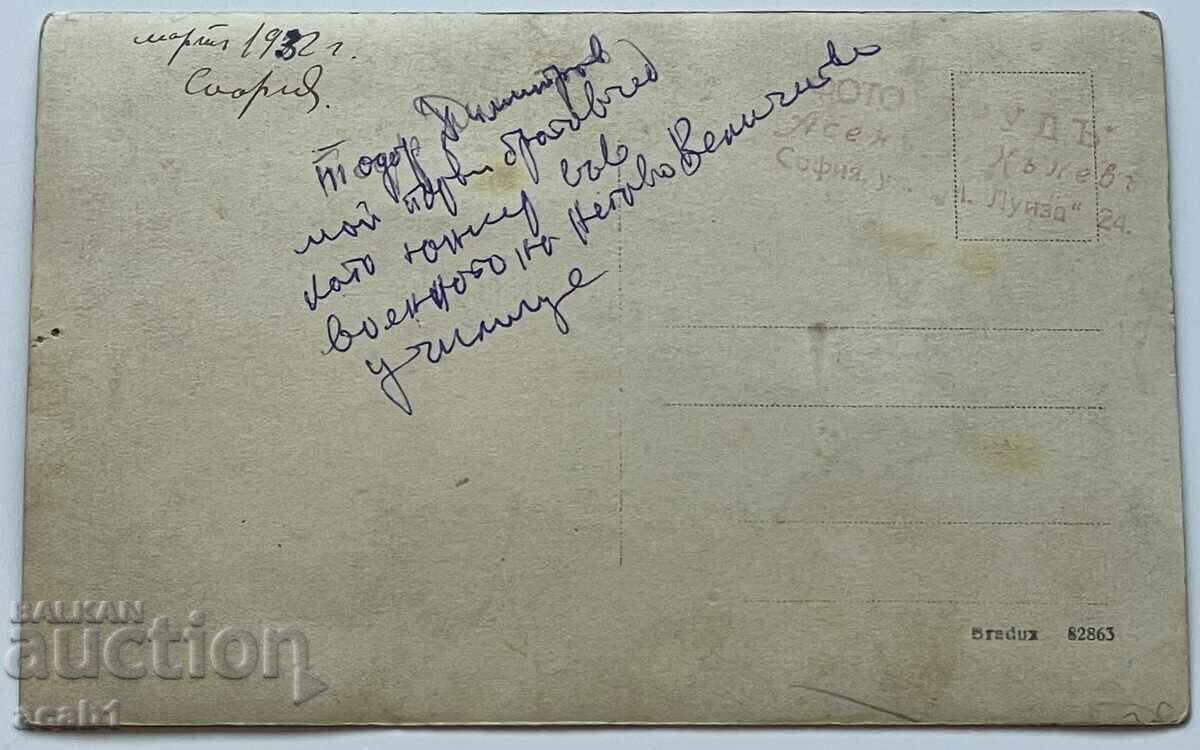 март 1932 г.
София.
Тодор Димитров
мой първи братовчед
като юнкер във
военното на Негово Величество
училище
ФОТО
"УДЪ"
Асен Къневъ
София, у "М. Луиза" 24.
Bradux 82863
BALKAN
auction
acab1